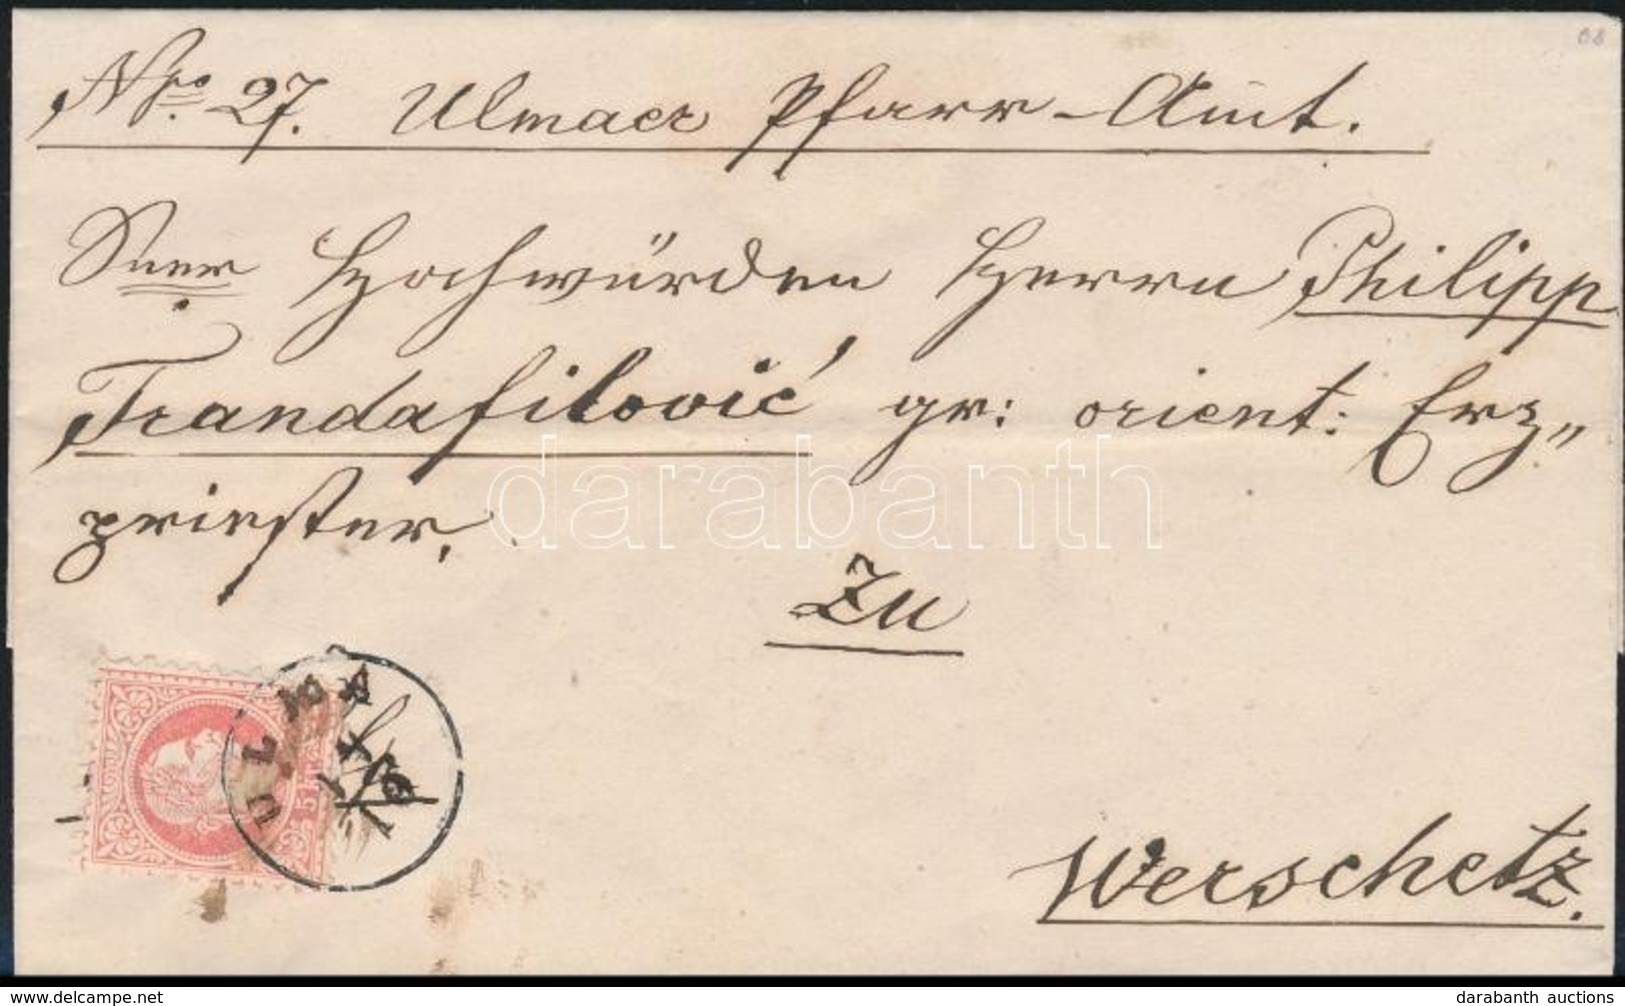 Nro. 27. Ulmaer Pfarr-Amt.
Hochwürden Herrn Philipp
Trandafilović gr: orient: Erz„
priester.
Zu
Werschetz.
ULMA
5
darabanth
darabanth auctions